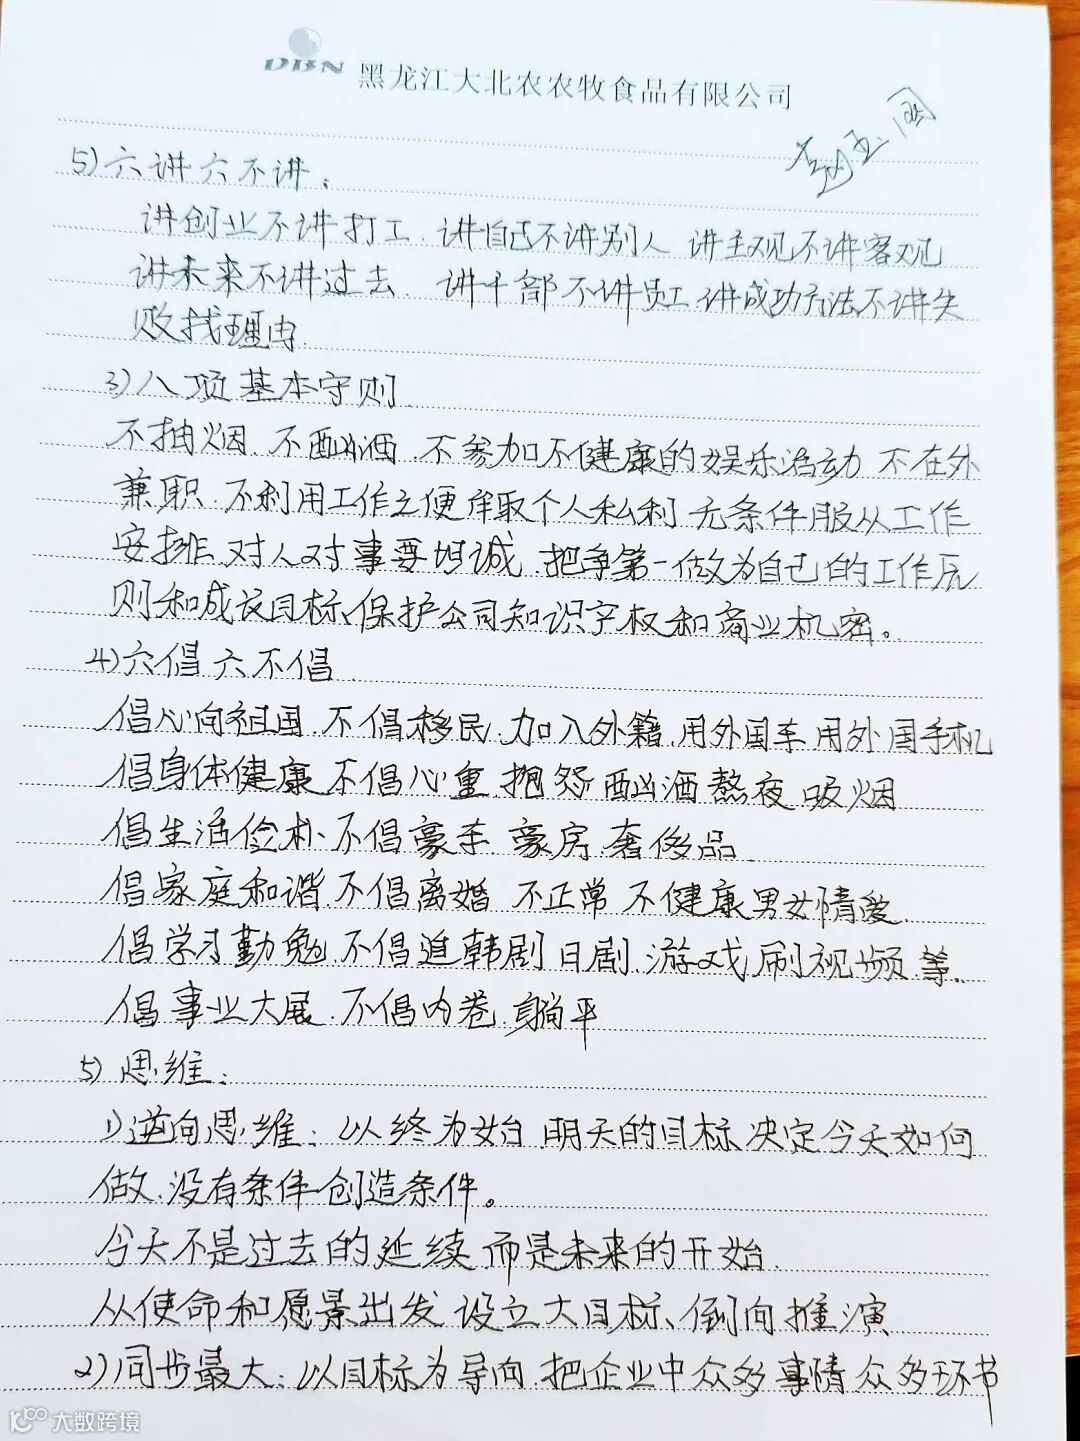 DBN 黑龙江大北农农牧食品有限公司
5)六讲六不讲:
讲创业不讲打工.讲自己不讲别人 讲主观不讲客观
讲未来不讲过去.讲干部不讲员工.讲成功方法不讲失
败找理由.
3)八项基本守则.
不抽烟.不酗酒.不参加不健康的娱乐活动 不在外
兼职.不利用工作之便牟取个人私利 无条件服从工作
安排.对人对事要坦诚.把争第一做为自己的工作原
则和成议目标、保护公司知识产权和商业机密。
4)六倡六不倡.
倡心向祖国.不倡移民.加入外籍.用外国车用外国手机
倡身体健康 不倡心重.抱怨 酗酒 熬夜 吸烟
倡生活俭朴、不倡豪车 豪房.奢侈品.
倡家庭和谐.不倡离婚 不正常 不健康男女情爱.
倡学习勤勉.不倡追韩剧 日剧.游戏.刷视频.等.
倡事业大展.不倡内卷.躺平
5)思维:
1)逆向思维:以终为始.明天的目标决定今天如何
做.没有条件创造条件。
今天不是过去的延续 而是未来的开始.
从使命和愿景出发 设立大目标、倒向推演
2)同步最大:以目标为导向.把企业中众多事情众多环节
大数跨境